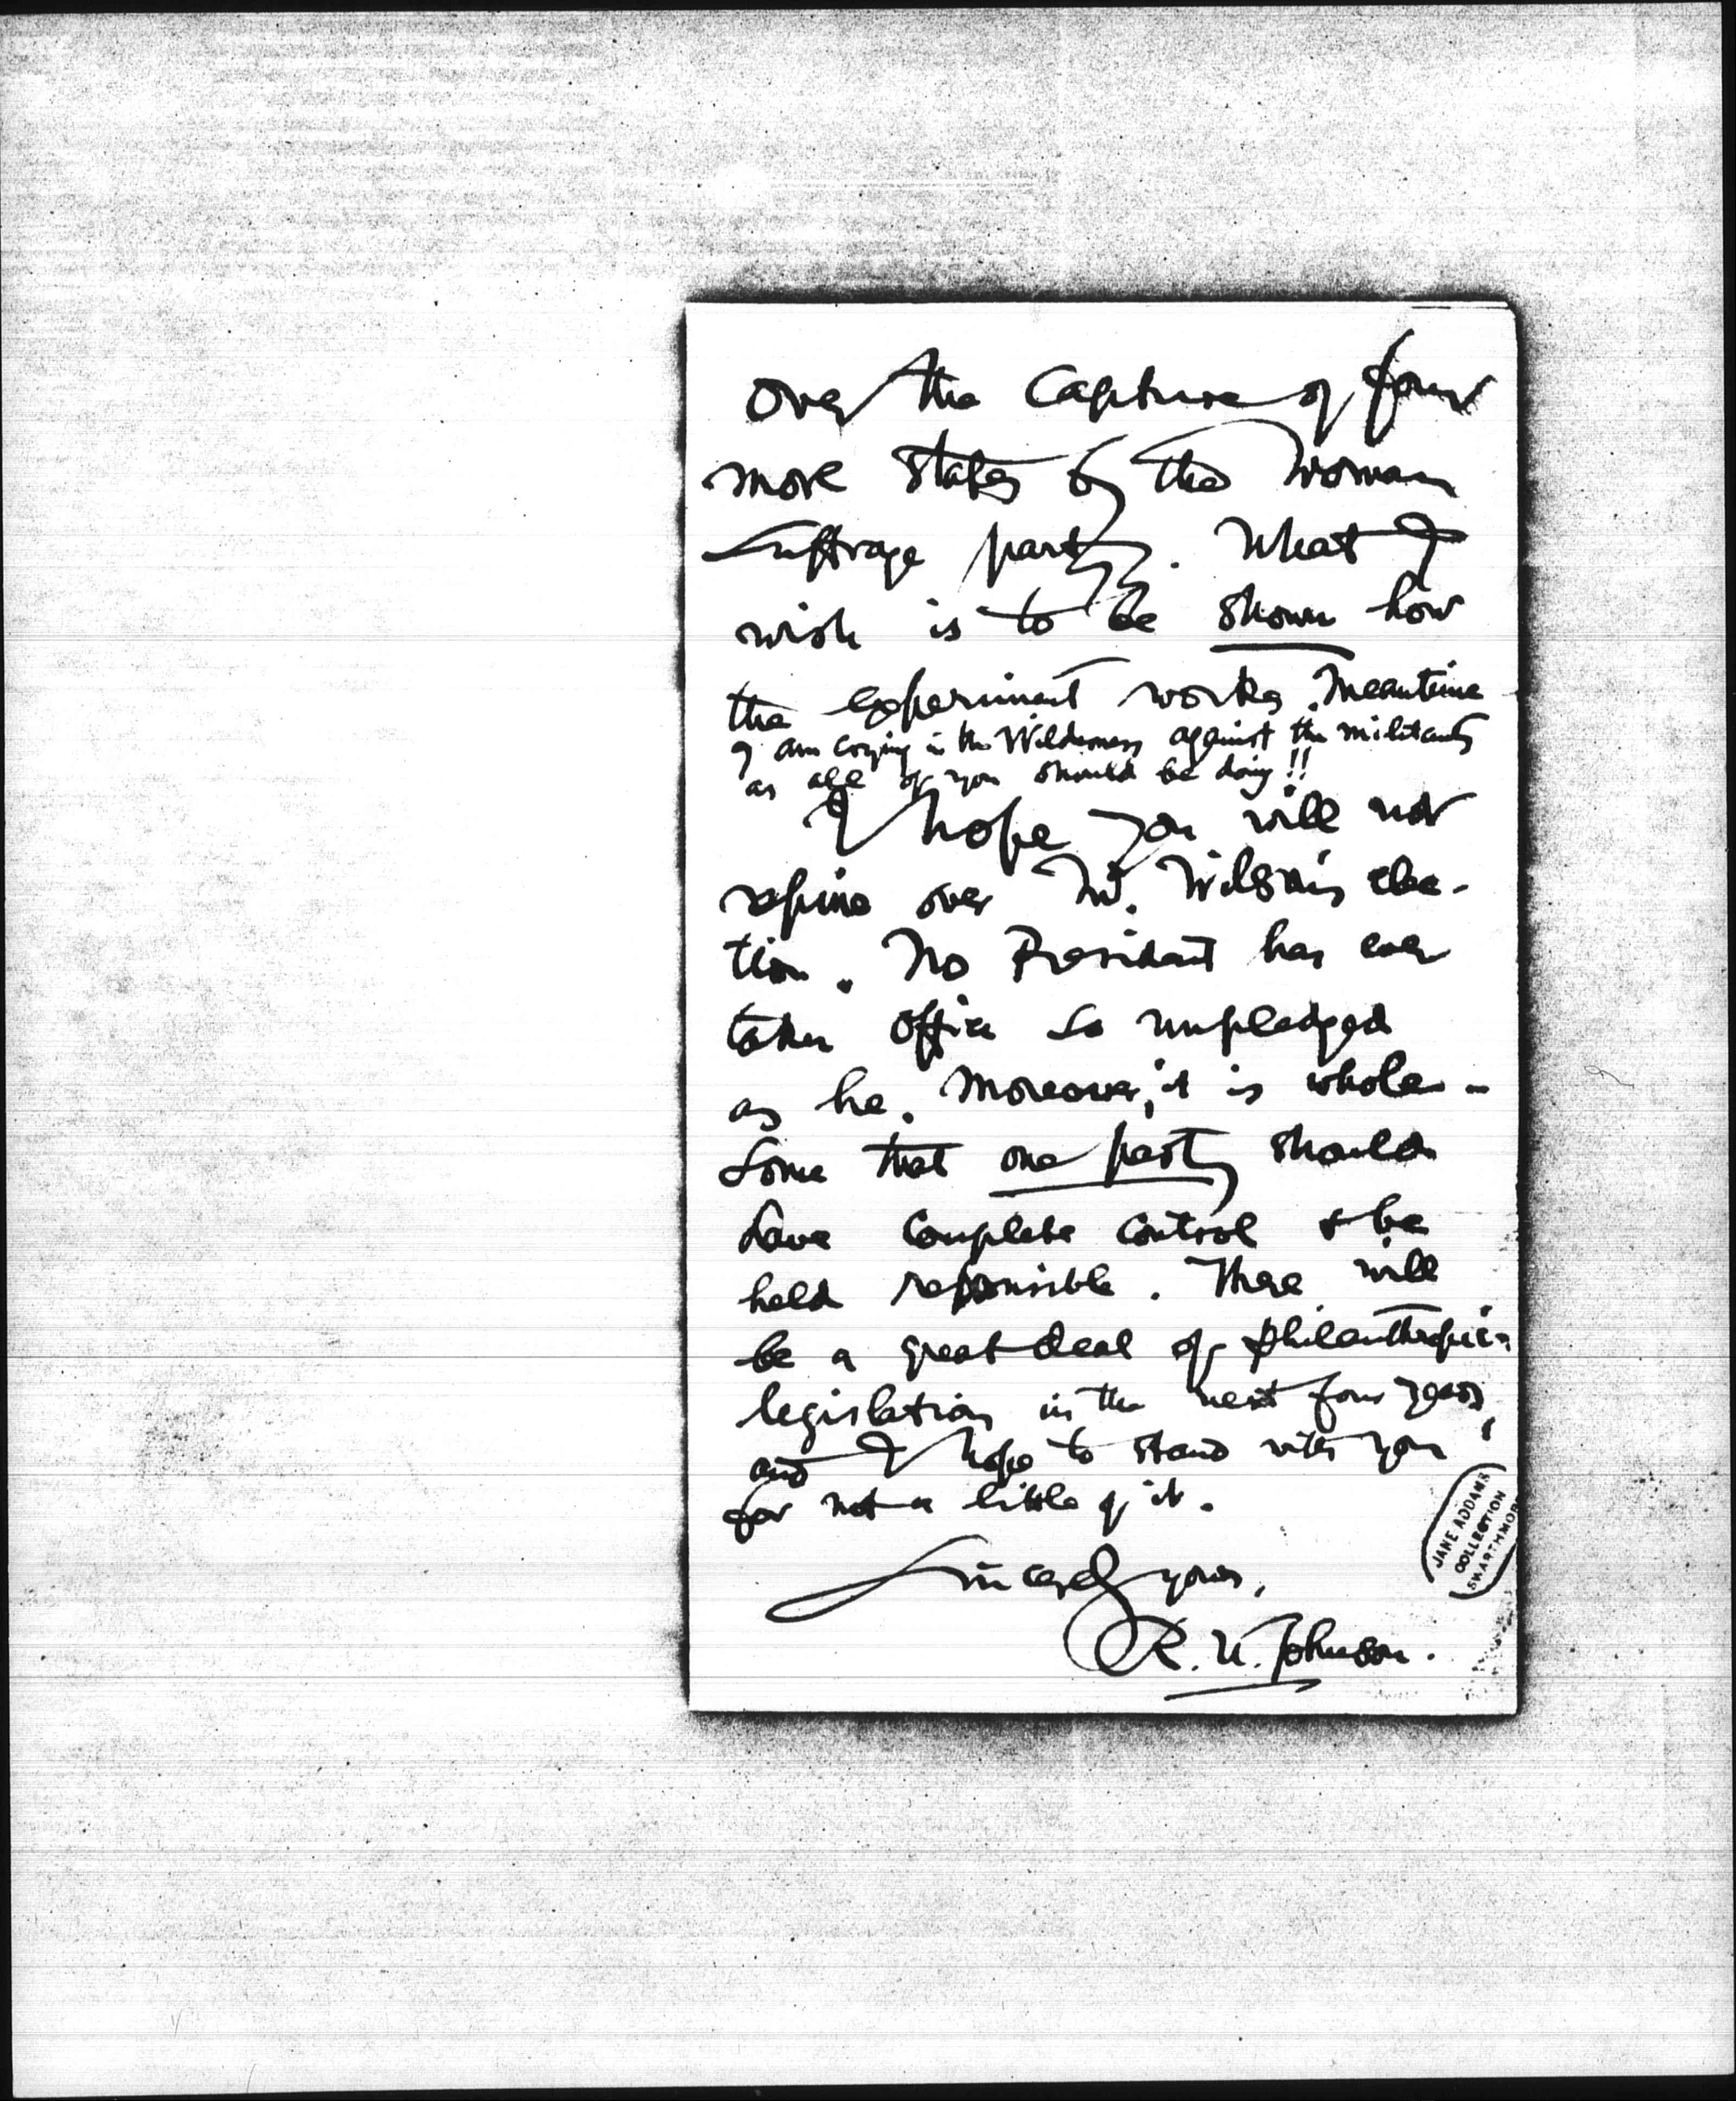 Over the Capture of four
more States by the Woman
Suffrage party. What I
wish is to be shown how
the experiment works. Meantime
I am crying in the Wilderness against the militants
as all of you should be doing!!
I hope you will not
repine over Mr. Wilson's elec-
tion. No President has ever
taken office so unpledged
as he. Moreover, it is whole-
some that one party should
have complete control & be
held responsible. There will
be a great deal of philanthropic
legislation in the next four years,
and I hope to stand with you
for not a little of it.
Sincerely yours,
R. U. Johnson.
JANE ADDAMS
COLLECTION
SWARTHMORE